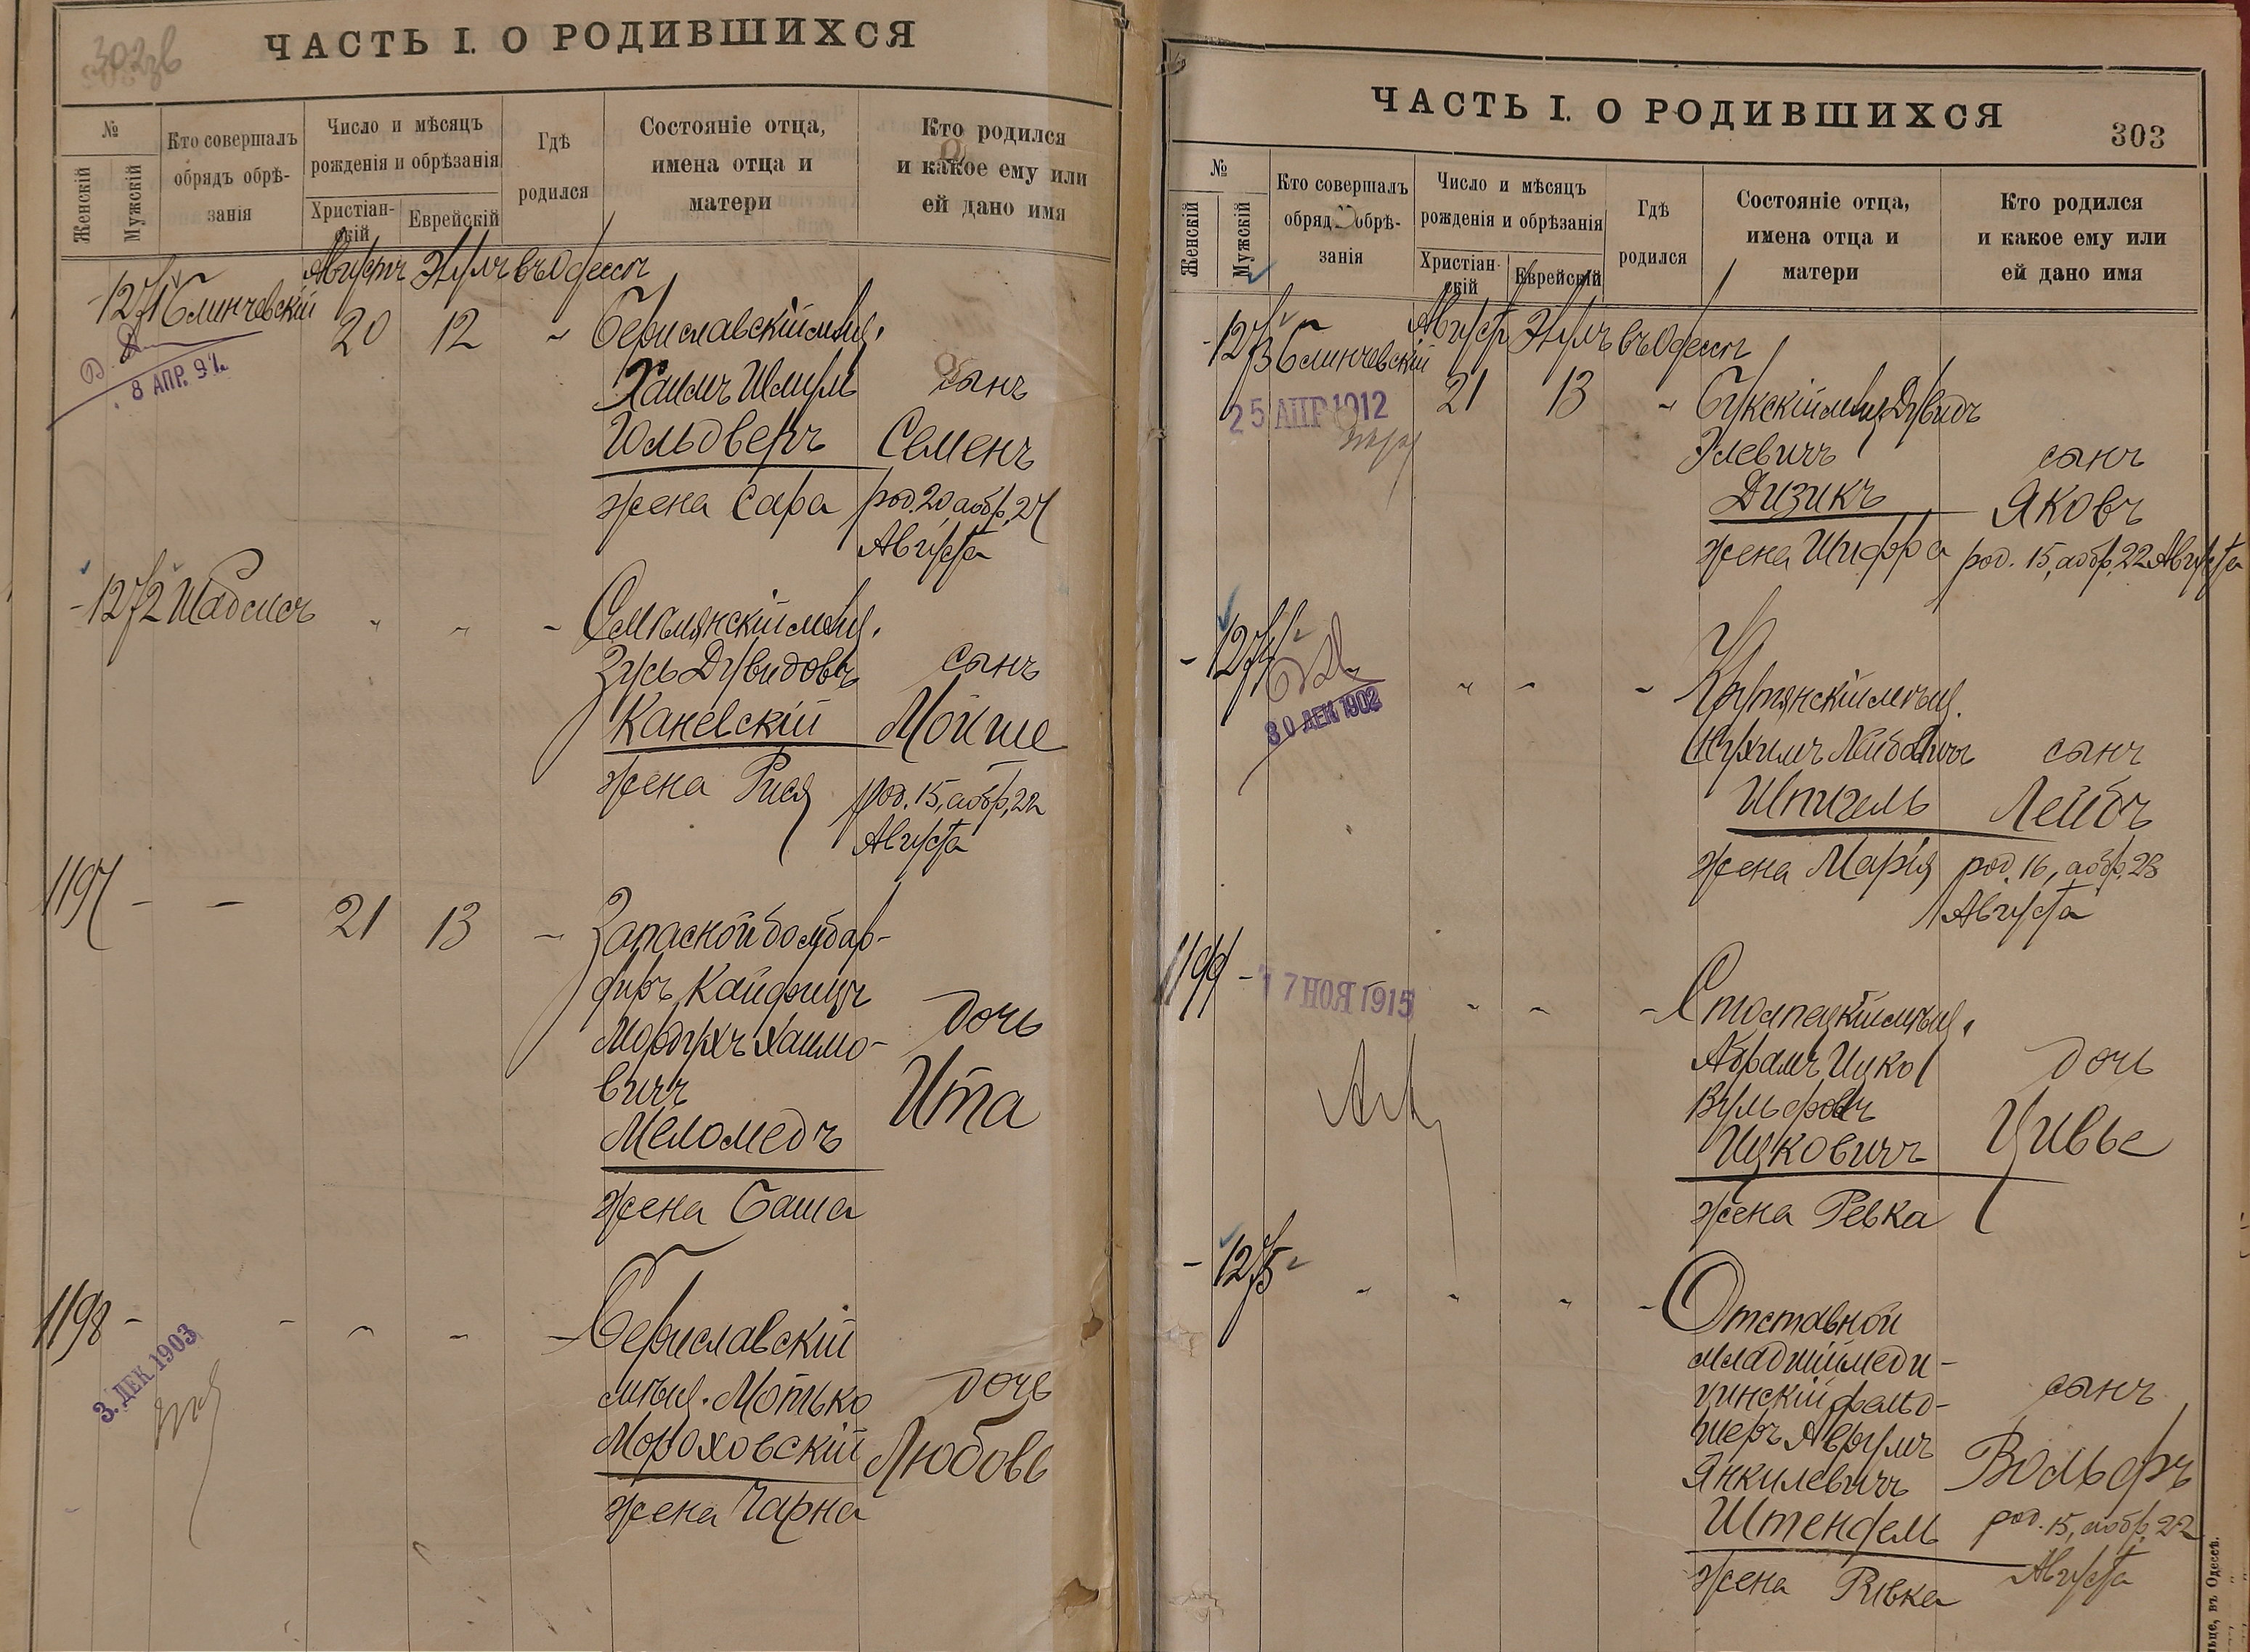 ЧАСТЬ I. О РОДИВШИХСЯ
№
Женскій
Мужскій
Кто совершалъ
обрядъ обрѣ-
занія
Число и мѣсяцъ
рожденія и обрѣзанія
Христіан-
скій
Еврейскій
Гдѣ
родился
Состояніе отца,
имена отца и
матери
Кто родился
и какое ему или
ей дано имя
Августъ Элулъ въ Одессѣ
1271 Блинчевскій
20 12 Бериславскій мѣщ.
8 АПР. 97.
Хаимъ Шлиум сынъ
Гольдбергъ Семенъ
жена Сара род. 20, а обр. 27
Августа
1272
Смѣлянскій мѣщ.
Зусь Дувидовъ сынъ
Каневскій Мойше
жена Рися род. 15, а обр. 22
Августа
1197 - -
21 13 - Запасной бомбар-
диръ
Мордухъ Хаимо- дочь
вичъ Ита
Меломедъ
жена Баша
1198 -
3. ДЕК. 1903
Бериславскій
мѣщ. Мотько дочь
Мороховскій Любовь
жена Чарна
ЧАСТЬ I. О РОДИВШИХСЯ
303
№
Женскій
Мужскій
Кто совершалъ
обрядъ обрѣ-
занія
Число и мѣсяцъ
рожденія и обрѣзанія
Христіан-
скій
Еврейскій
Гдѣ
родился
Состояніе отца,
имена отца и
матери
Кто родился
и какое ему или
ей дано имя
Августъ Элулъ въ Одессѣ
1273 Блинчевскій
21 13 Букскій мѣщ. Дувидъ
25 АПР 1912
Элевичъ сынъ
Дизикъ Яковъ
жена Шифра род. 15, а обр. 22 Августа
1274
30 ДЕК 1902
Крутянскій мѣщ.
Нухимъ сынъ
Шпигель Лейбъ
жена Марія род. 16, а обр. 23
Августа
1199 -
17 НОЯ 1915
Столпецкій мѣщ.
Абрамъ Ицко дочь
Вульфовъ Цивье
Ицковичъ
жена Ревка
1275
Отставной
младшій меди-
цинскій фельд- сынъ
шеръ Аврумъ
Янкилевичъ Вольфъ
Штенфель род. 15, а обр. 22
жена Ривка Августа
въ Одессѣ.